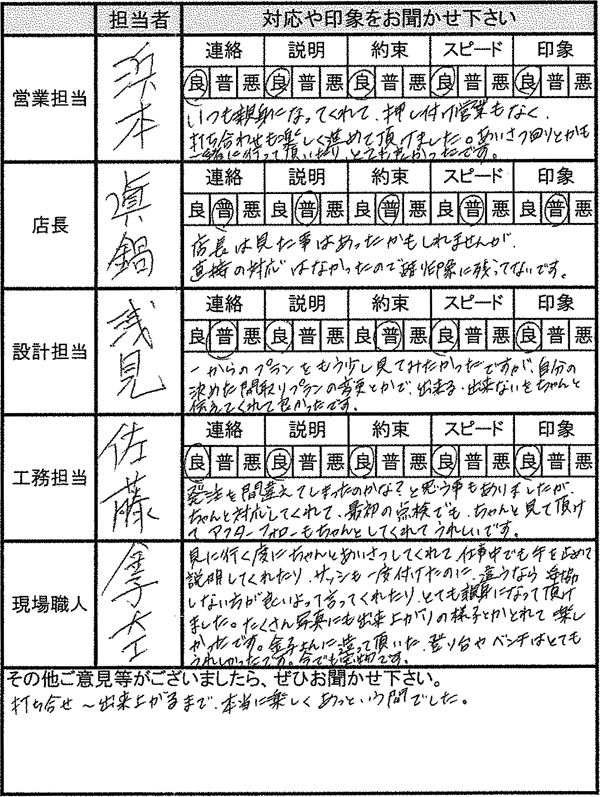 担当者 対応や印象をお聞かせ下さい
営業担当 浜本
連絡 説明 約束 スピード 印象
良 普 悪 良 普 悪 良 普 悪 良 普 悪 良 普 悪
いつも親身になってくれて、押し付け営業もなく、
打ち合わせも楽しく進めて頂けました。あいさつ回りとかも
一緒に行って頂いたり、とても良かったです。
店長 真鍋
連絡 説明 約束 スピード 印象
良 普 悪 良 普 悪 良 普 悪 良 普 悪 良 普 悪
店長は見た事はあったかもしれませんが、
直接の対応はなかったので 印象に残ってないです。
設計担当 浅見
連絡 説明 約束 スピード 印象
良 普 悪 良 普 悪 良 普 悪 良 普 悪 良 普 悪
一からのプランをもう少し見てみたかったですが、自分の
決めた間取りプランの変更とかで、出来る、出来ないをちゃんと
伝えてくれて良かったです。
工務担当 佐藤
連絡 説明 約束 スピード 印象
良 普 悪 良 普 悪 良 普 悪 良 普 悪 良 普 悪
発注を間違えてしまったのかな?と思う事もありましたが、
ちゃんと対応してくれて、最初の点検でも、ちゃんと見て頂け
て アフターフォローもちゃんとしてくれてうれしいです。
現場職人 金子大工
見に行く度にちゃんとあいさつしてくれて、仕事中でも手を止めて
説明してくれたり、サッシも一度付けたのに、違うなら妥協
しない方が良いよって言ってくれたり、とても親身になって頂け
ました。たくさん写真にも出来上がりの様子とかとれて楽し
かったです。金子さんに造って頂いた、登り台やベンチはとても
うれしかったです。今でも宝物です。
その他ご意見等がございましたら、ぜひお聞かせ下さい。
打ち合せ～出来上がるまで、本当に楽しくあっという間でした。